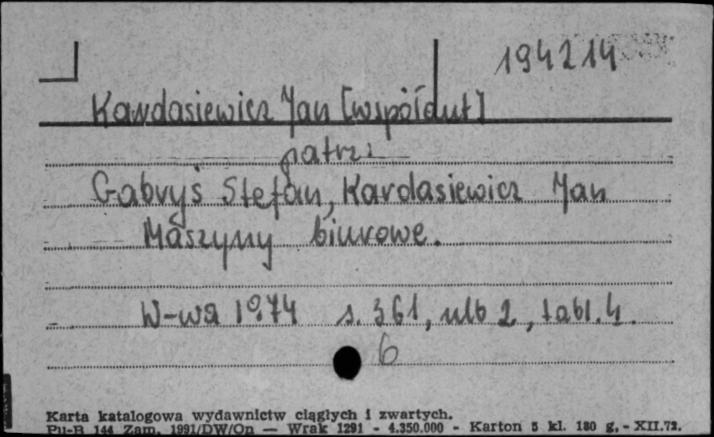 194214
Kardasiewicz Jan [współaut]
patrz:
Gabryś Stefan, Kardasiewicz Jan
Maszyny biurowe.
W-wa 1974 s. 361, nlb 2, tabl. 4.
6
Karta katalogowa wydawnictw ciągłych i zwartych.
Pu-B 144 Zam. 1991/DW/On — Wrak 1291 - 4.350.000 - Karton 5 kl. 180 g. - XII.72.